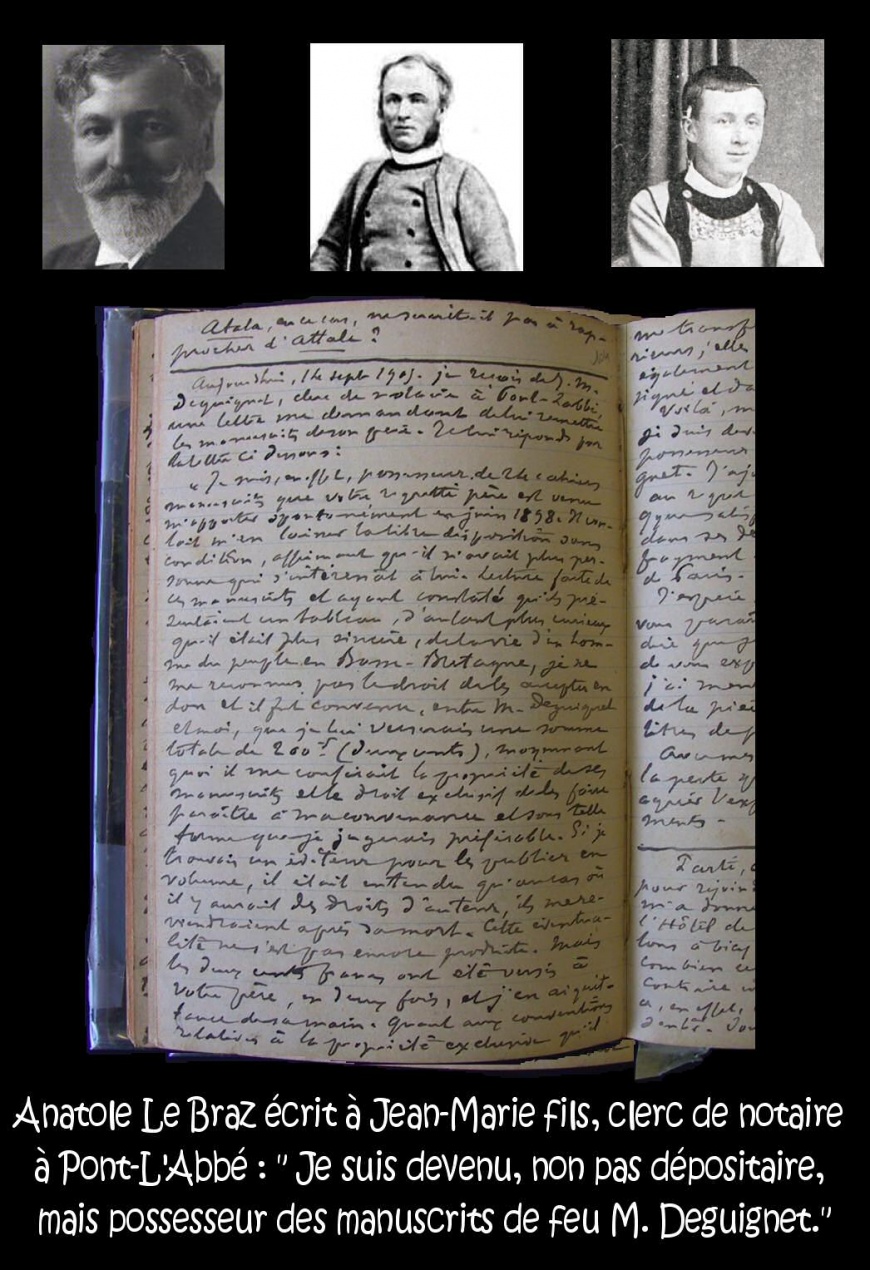 Atala, en ce cas, ne serait-il pas à rap-
procher d'Attale ?
Aujourdhui, 14 sept 1905. je reçois de J. M.
Deguignet, clerc de notaire à Pont-Labbé,
une lettre me demandant de lui remettre
les manuscrits de son père. Je lui réponds par
la lettre ci dessous :
"Je suis, en effet, possesseur de 24 cahiers
manuscrits que votre regretté père est venu
m'apporter spontanément en juin 1898. Il vou-
lait m'en laisser la libre disposition sans
condition, affirmant qu'il n'avait plus per-
sonne qui s'intéressât à lui. Lecture faite de
ces manuscrits et ayant constaté qu'ils pré-
sentaient un tableau, d'autant plus curieux
qu'il était plus sincère, de la vie d'un hom-
me du peuple en Basse-Bretagne, je ne
me reconnus pas le droit de les accepter en
don et il fut convenu, entre M. Deguignet
et moi, que je lui verserais une somme
totale de 200f (deux cents), moyennant
quoi il me conférait la propriété de ses
manuscrits et le droit exclusif de les faire
paraître à ma convenance et sous telle
forme que je jugerais préférable. Si je
trouvais un éditeur pour les publier en
volume, il était entendu qu'au cas où
il y aurait des droits d'auteur, ils me re-
viendraient après sa mort. Cette éventua-
lité ne s'est pas encore produite. Mais
les deux cents francs ont été versés à
votre père, en deux fois, et j'en ai quit-
tance de sa main. Quant aux conventions
relatives à la propriété exclusive qu'il
me transf
rieurs, j'elles
également
signé et da
Voilà, m
je suis dev
possesseur
gnet. J'aj
au
que
dans ses de
fragment
de Paris.
J'espère
vous paraî
dire que j
de vous exp
j'ai
de la piè
titres de p
la perte q
ments.
Parti,
pour rejoin
m'a donné
l'Hôtel de
combien ce
contraire
a, en effet,
Anatole Le Braz écrit à Jean-Marie fils, clerc de notaire
à Pont-L'Abbé : " Je suis devenu, non pas dépositaire,
mais possesseur des manuscrits de feu M. Deguignet."